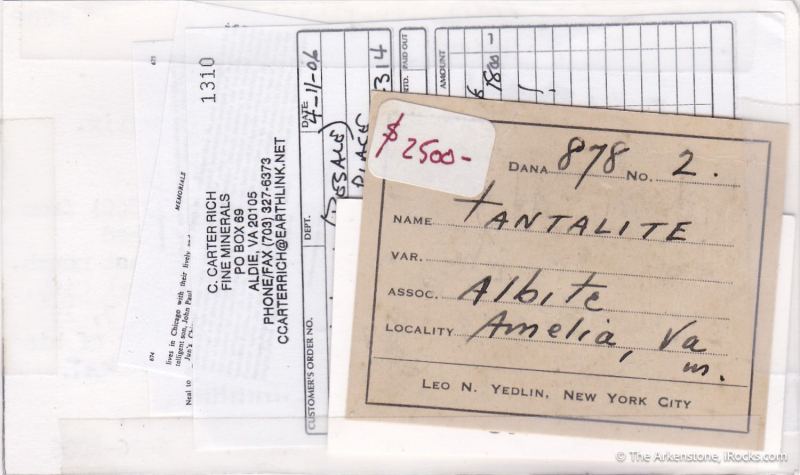 $ 2500-
DANA 878 No. 2.
NAME TANTALITE
VAR.
ASSOC. Albite
LOCALITY Amelia, Va
LEO N. YEDLIN, NEW YORK CITY
1310
C. CARTER RICH
FINE MINERALS
PO BOX 69
ALDIE, VA 20105
PHONE/FAX (703) 327-6373
CCARTERRICH@EARTHLINK.NET
CUSTOMER'S ORDER NO.
DEPT.
DATE
4-11-06
314
PAID OUT
AMOUNT
1800-
675
MEMORIALS
674
lives in Chicago with their lively
telligent son, John Paul
Neal to
© The Arkenstone, iRocks.com